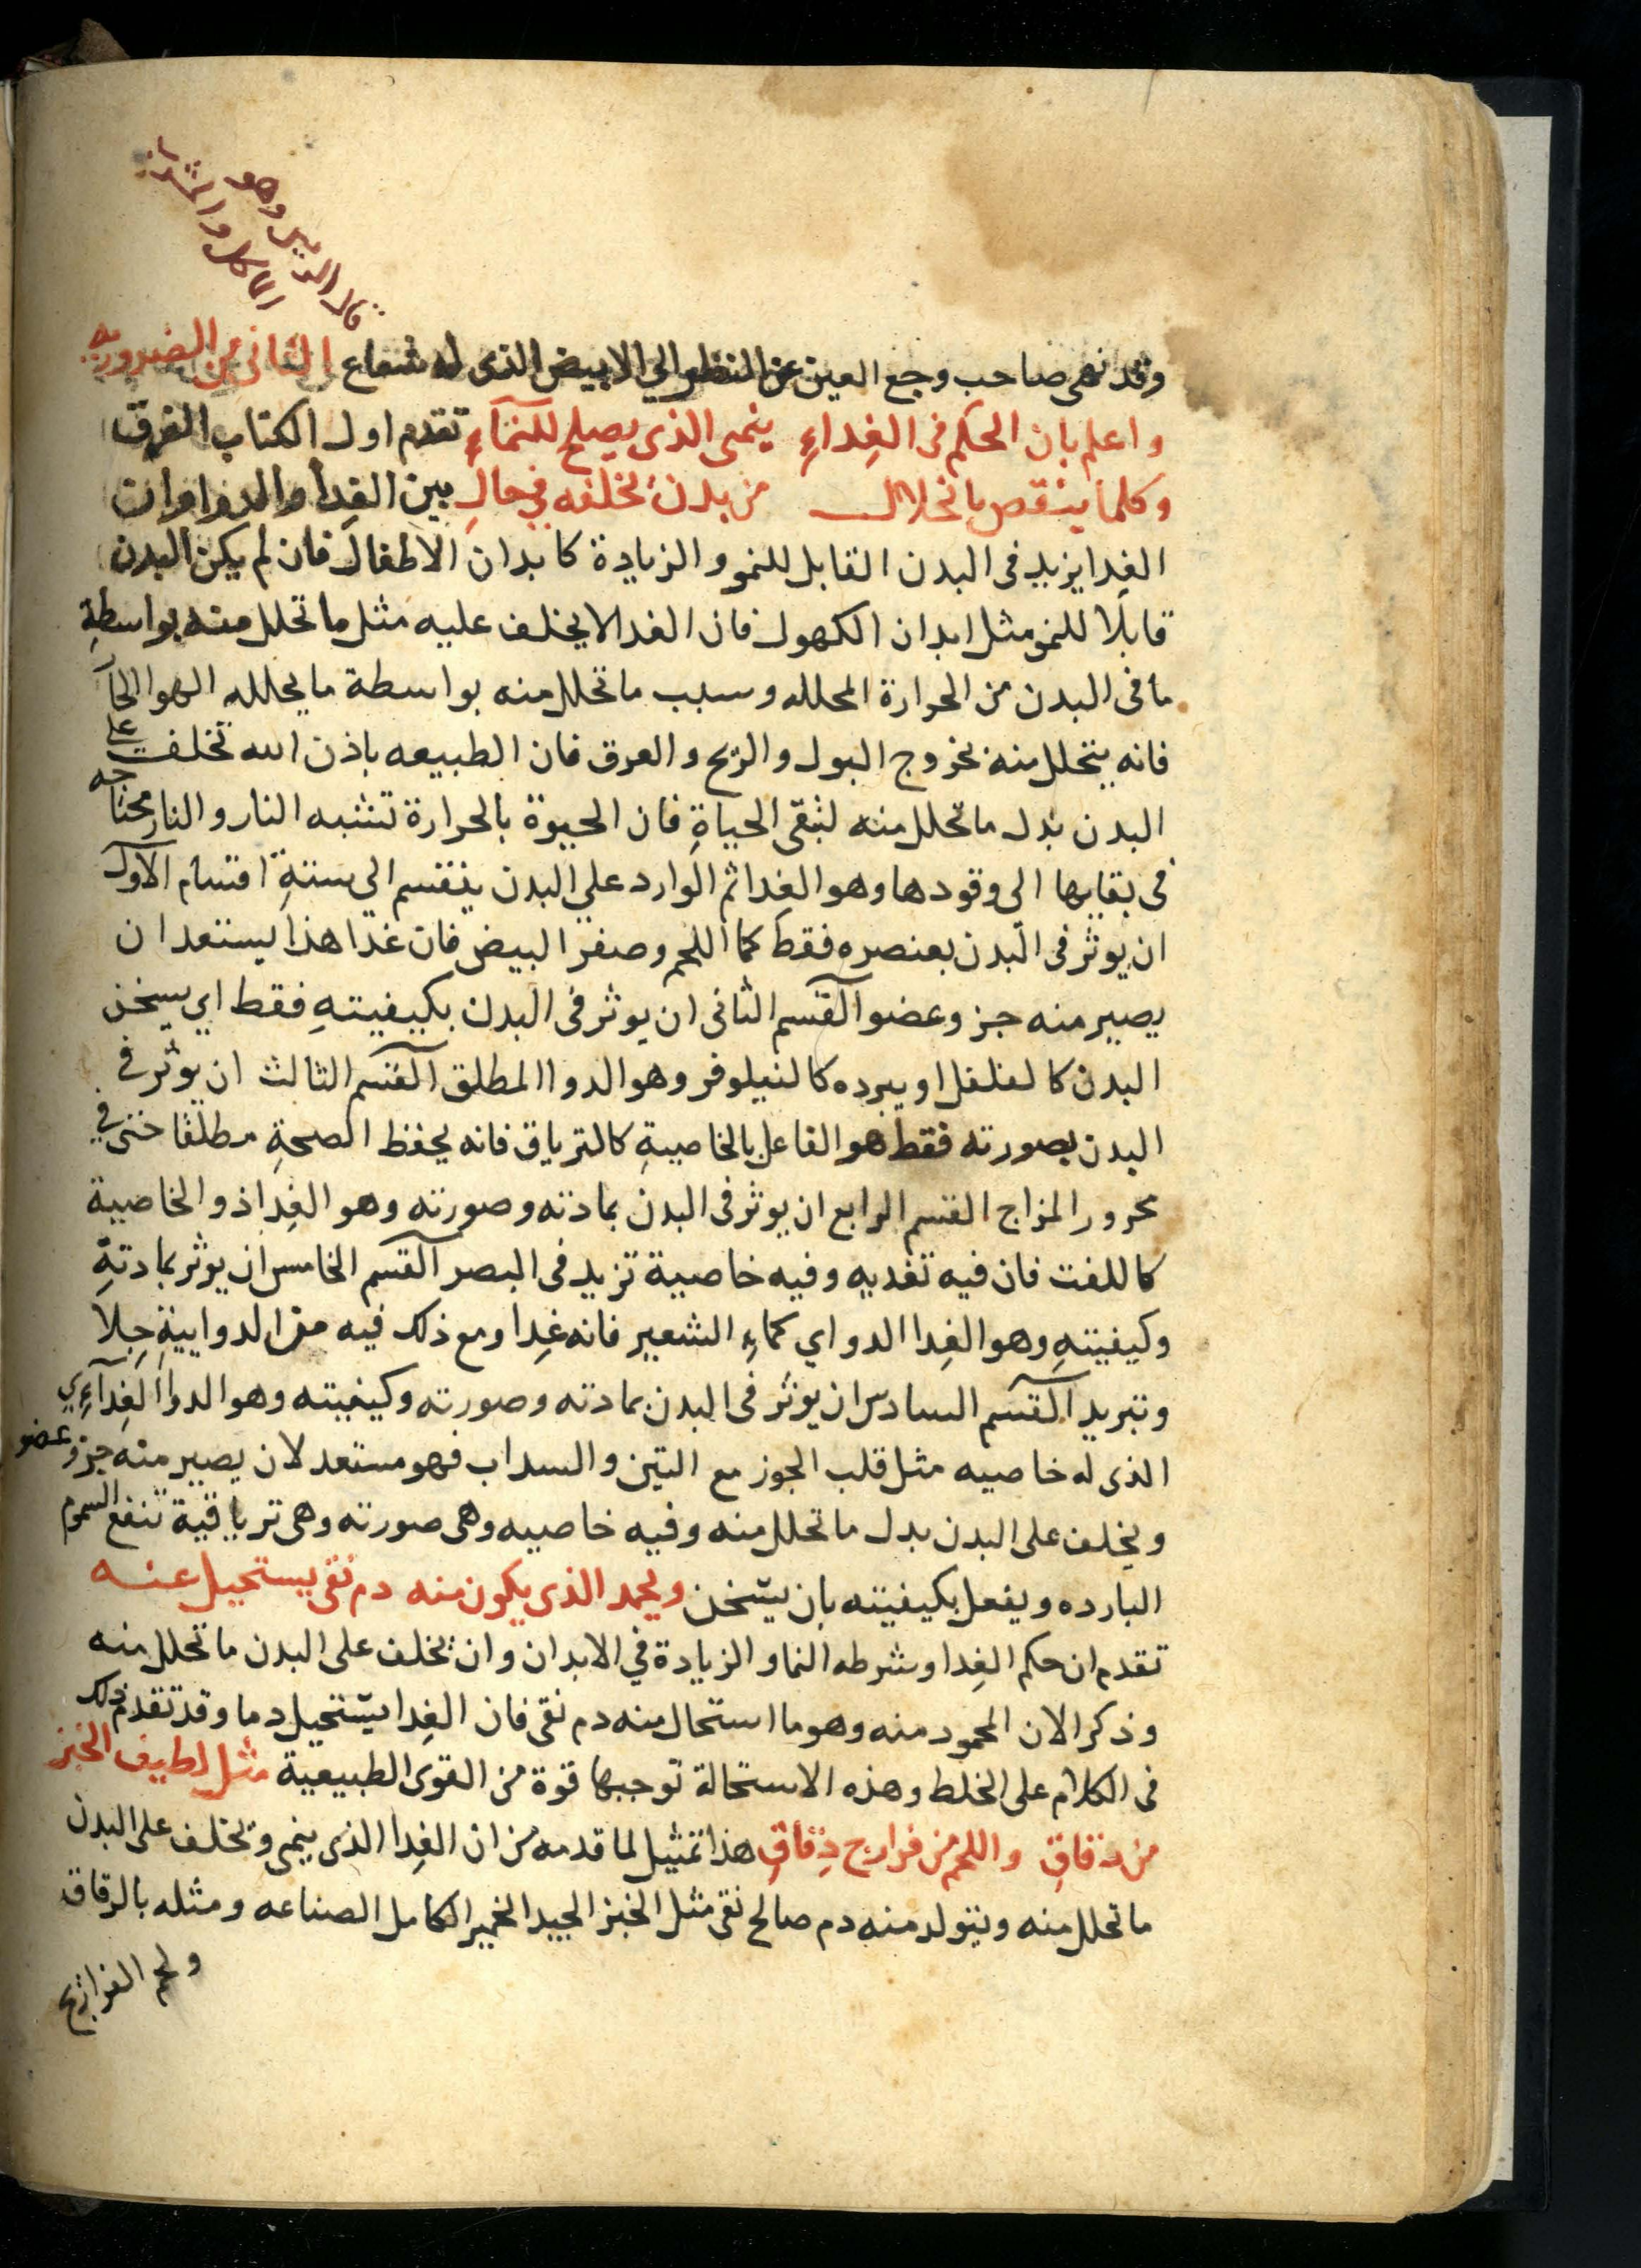 قال الشيخ وهو
الاكل والمشرب
وقد نهى صاحب وجع العين عن النظر الي الابيض الذى له شعاع الثانى من الضروريه
واعلم بان الحكم فى الغِداءِ ينمى الذى يصلح للنمآءِ تقدم اول الكتاب الفرق
وكلما ينقص بانحلال من بدن تخلفه في حالِ بين الغِدا والدوا وان
الغِدا يزيد فى البدن القابل للنمو والزيادة كابدان الاطفال فان لم يكن البدن
قابلًا للنمو مثل ابدان الكهول فان الغدا لا يخلف عليه مثل ما تحلل منه بواسطةِ
ما فى البدن من الحرارة المحلله وسبب ما تحلل منه بواسطة ما يحلله الهوا الحآ
فانه يتحلل منه بخروج البول والريح والعرق فان الطبيعه باذن الله تخلف على
البدن بدل ما تحلل منه لتبقى الحياةِ فان الحيوة بالحرارة تشبه النار والنار محتاجه
فى بقايها الى وقودها وهو الغِدا ثم الوارد على البدن ينقسم الى ستةِ اقسام الآول
ان يوثر فى البدن بعنصره فقط كما اللحم وصفر البيض فان غدا هذا يستعد ان
يصير منه جزو عضو آلقسم الثانى ان يوثر فى البدن بكيفيتهِ فقط اي يسخن
البدن كالفلفل او يبرده كالنيلوفر وهو الدوا المطلق آلقسم الثالث ان يوثر في
البدن بصورته فقط هو الفاعل بالخاصيةِ كالترياق فانه يحفظ الصحةِ مطلقا حتى في
محرور المزاج القسم الرابع ان يوثر فى البدن بمادته وصورته وهو الغِدا ذو الخاصية
كاللفت فان فيه تغديه وفيه خاصية تزيد فى البصر آلقسم الخامس ان يوثر بمادتةِ
وكيفيتهِ وهو الغِدا الدواي كماءِ الشعير فانه غِدا ومع ذلك فيه من الدواييةِ جِلا
وتبريد آلقسم السادس ان يوثر فى البدن بمادته وصورته وكيفيته وهو الدوا الغِدآءِي
الذى له خاصيه مثل قلب الجوز مع التين والسداب فهو مستعد لان يصير منه جزو عضو
ويخلف على البدن بدل ما تحلل منه وفيه خاصيه وهى صورته وهى ترياقية تنفع السموم
البارده ويفعل بكيفيته بان يسخن ويحمد الذى يكون منه دم نقى يستحيل عنه
تقدم ان حكم الغِدا وشرطه النما والزيادة في الابدان وان يخلف على البدن ما تحلل منه
وذكر الان المحمود منه وهو ما استحال منه دم نقى فان الغِدا يستحيل دما وقد تقدم ذلك
فى الكلام على الخلط وهذه الاستحالة توجبها قوة من القوى الطبيعية مثل لطيف الخبز
من رقاقِ واللحم من فراريج دِقاقِ هذا تمثيل لما قدمه من ان الغِدا الذى ينمى وتخلف على البدن
ما تحلل منه ويتولد منه دم صالح نقى مثل الخبز الجيد الخمير الكامل الصناعه ومثله بالرقاق
ولحم الفراريج